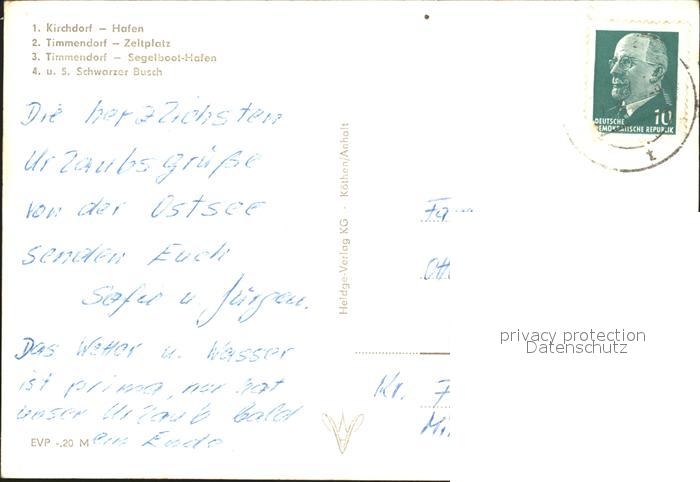 1. Kirchdorf – Hafen
2. Timmendorf – Zeltplatz
3. Timmendorf – Segelboot-Hafen
4. u. 5. Schwarzer Busch
Die herzlichsten
Urlaubsgrüße
von der Ostsee
senden Euch
u. Jürgen.
Das Wetter u. Wasser
ist prima, nur hat
unser Urlaub bald
ein Ende
EVP -.20 M
Heldge-Verlag KG - Köthen/Anhalt
10
DEUTSCHE
DEMOKRATISCHE REPUBLIK
Fam
Ott
privacy protection
Datenschutz
Kr. F